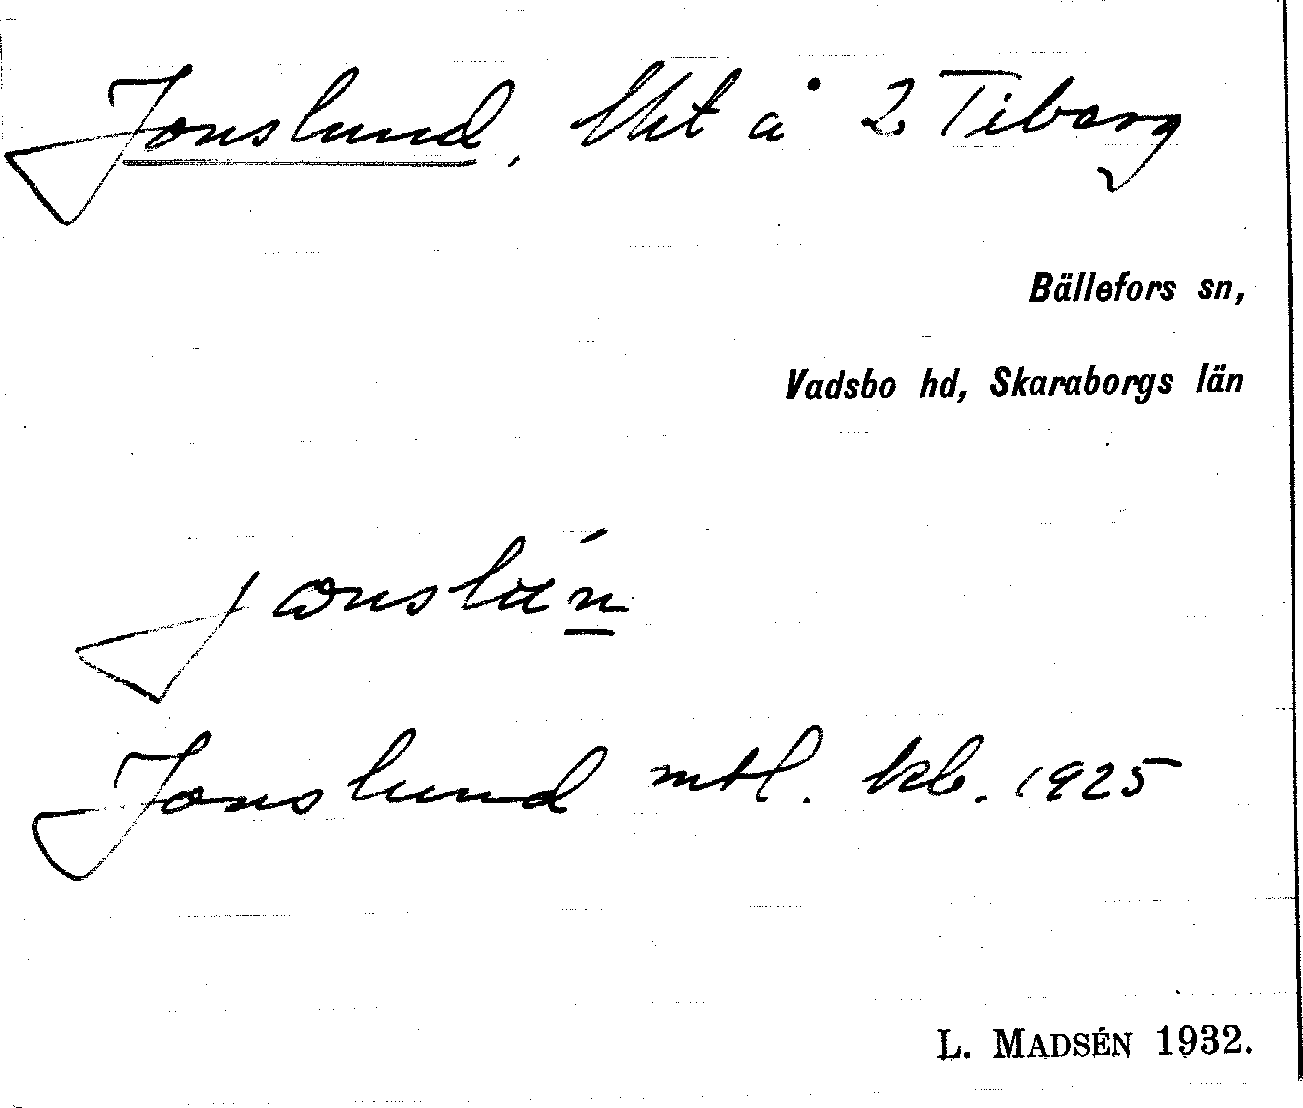 Jonslund, lht å 2 Tiborg
Bällefors sn,
Vadsbo hd, Skaraborgs län
Jonslund mtl. kb. 1925
L. MADSÉN 1932.